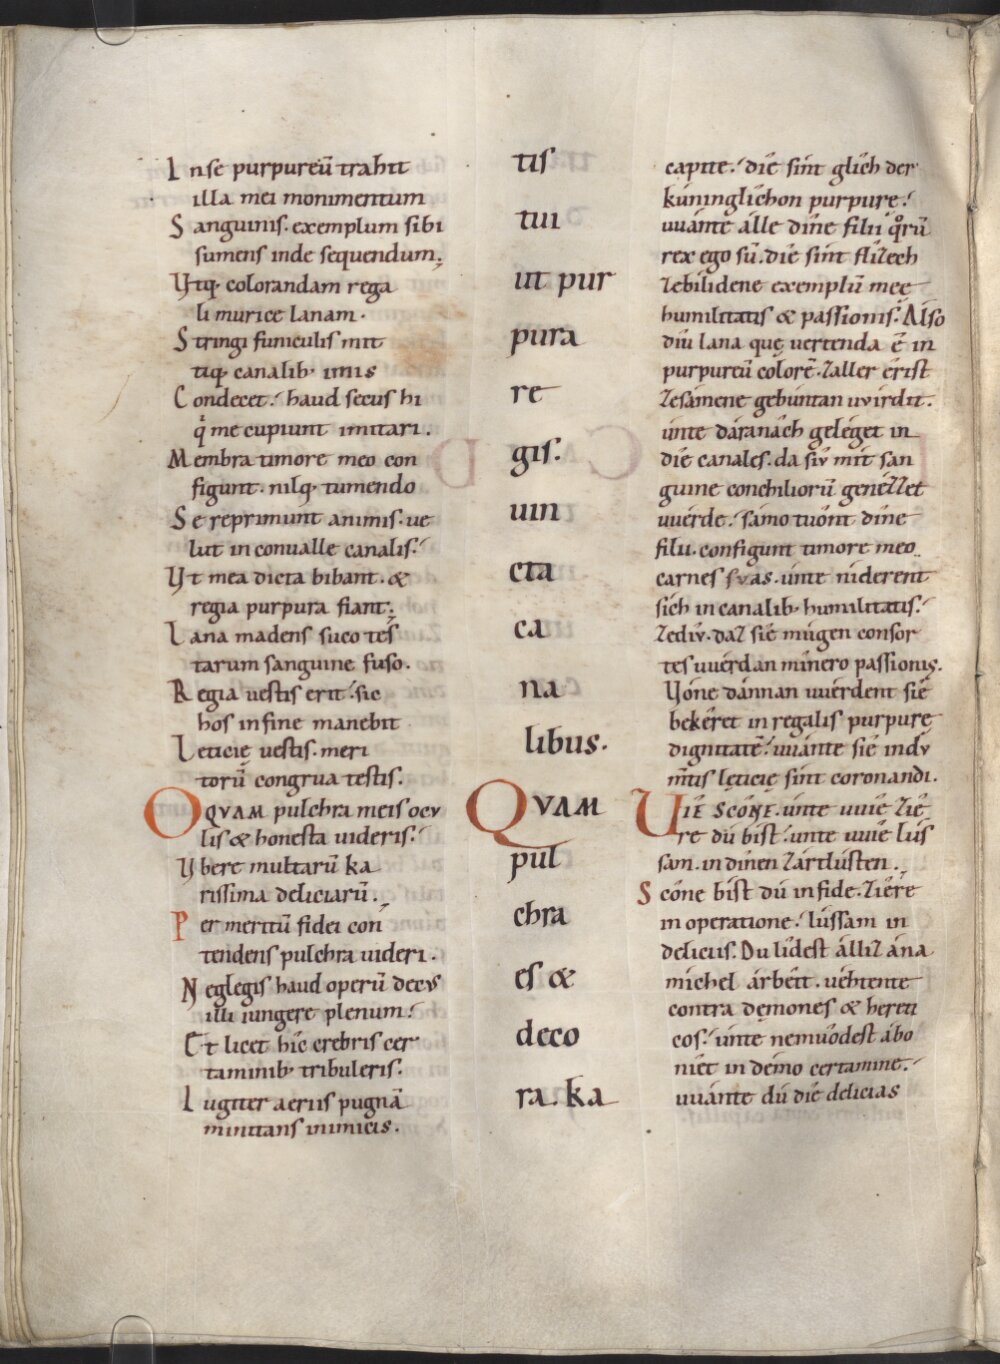 In se purpureū trahit
illa mei monimentum
Sanguinis. exemplum sibi
sumens inde sequendum;
Vtq; colorandam rega
li murice lanam.
Stringi funiculis mit
tiq; canalib; imis
Condecet. haud secus hi
q̇ me cupiunt imitari.
Membra timore meo con
figunt. nilq; tumendo
Se reprimunt animis. ue
lut in conualle canalis.
Vt mea dicta bibant. &
regia purpura fiant;
Lana madens suco tes
tarum sanguine fuso.
Regia uestis erit. sic
hos in fine manebit
Leticię uestis. meri
torū congrua testis.
O QVAM pulchra meis ocv
lis & honesta uideris.
Vbere multarū ka
rissima deliciarū.
Per meritū fidei con
tendens pulchra uideri.
Neglegis haud operū decvs
illi iungere plenum.
Et licet hic crebris cer
taminib; tribuleris.
Iugiter aeriis pugnā
minitans inimicis.
tis
tui
ut pur
pura
re
gis.
uin
cta
ca
na
libus.
QVAM
pul
chra
es &
deco
ra. ka
capite. díe sint glîch der
kúninglîchon purpurę.
uuánte álle díne filii q̊rū
rex ego sū. díe sint flîzech
zebilidene exemplū męę
humilitatis & passionis. Also
díu lana quę uertenda ē in
purpureū colorē. zaller êrist
zesámene gebúntan uvirdit.
únte dáranâch geléget in
díe canales. da siv mit san
guine conchiliorū genézzet
uuérde. sámo tuônt díne
filii. configunt timore meo
carnes svas. unte niderent
sich in canalib; humilitatis.
zediv. daz síe múgen consor
tes uuérdan mínero passionis.
Vóne dánnan uuérdent síe
bekêret in regalis purpurę
dignitatē. uuánte síe indv
mtis lęticię sint coronandi.
VIÉ SCÓNE. únte uuíe zíe
re dú bist. unte uuíe lús
sam. in dínen zártlústen.
Scóne bist dú in fide. Zîere
in operatione. lússam in
deliciis. Du lîdest álliz ána
míchel árbeit. uéhtente
contra dęmones & hereti
cos. únte nemuôdest ábo
níet in démo certamine.
uuánte dú díe delicias